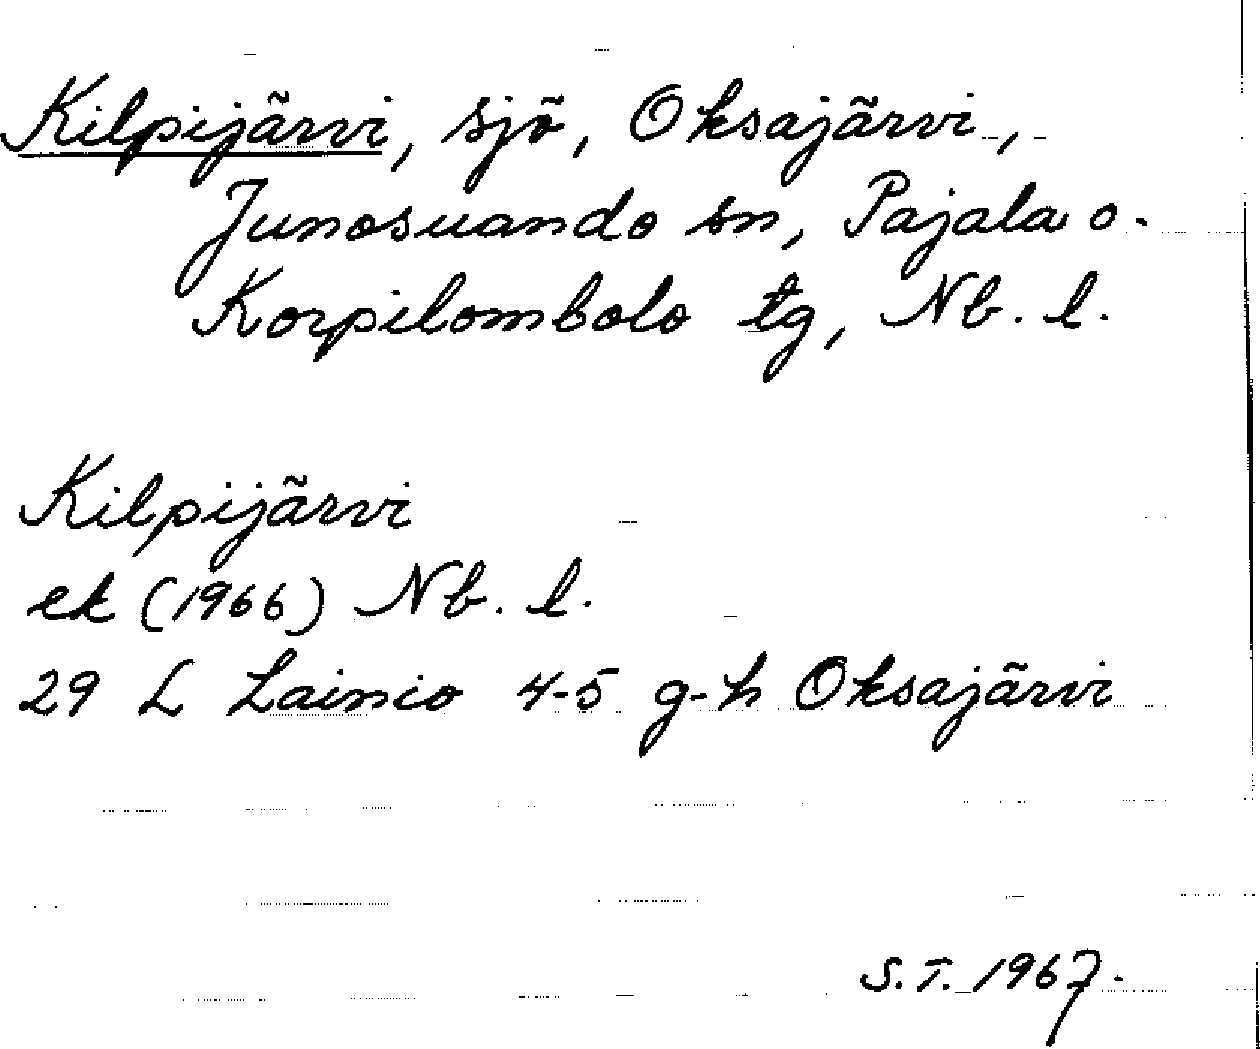 Kilpijärvi, sjö, Oksajärvi,
Junosuando sn, Pajala o.
Korpilombolo tg, Nb. l.
Kilpijärvi
ek (1966) Nb. l.
29 L Lainio 4-5 g-h Oksajärvi
S.T. 1967.